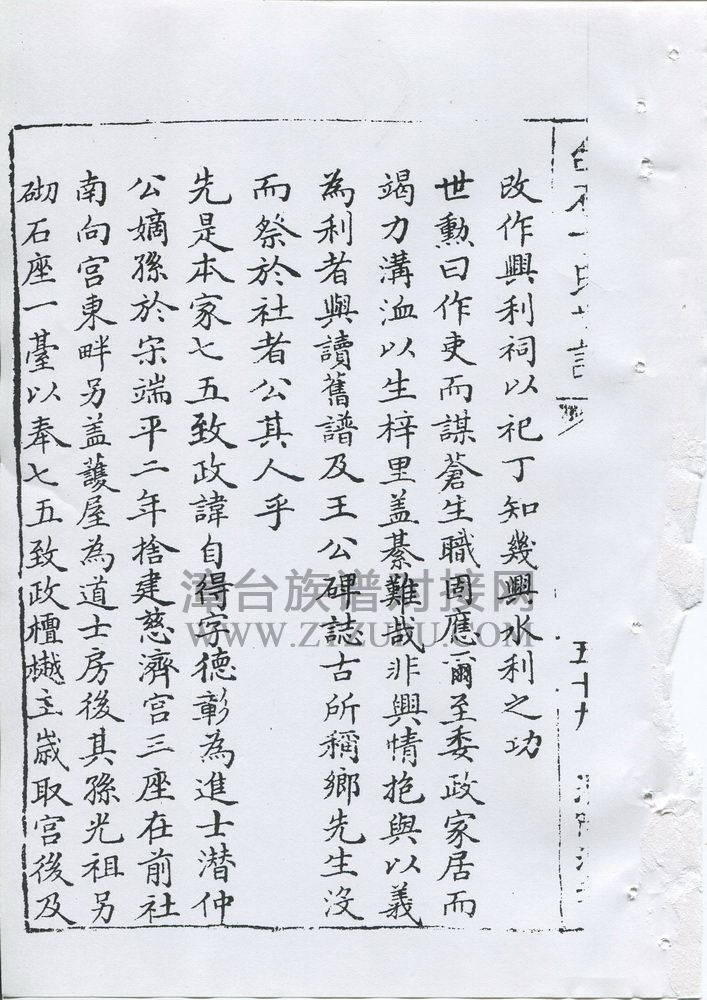 五十九
改作興利祠以祀丁知幾興水利之功
世勲曰作吏而謀蒼生職固應爾至委政家居而
竭力溝洫以生梓里盖綦難哉非興情抱與以義
為利者與讀舊譜及王公碑誌古所稱鄉先生没
而祭於社者公其人乎
先是本家七五致政諱自得字德彰為進士潜仲
公嫡孫於宋端平二年捨建慈濟宫三座在前社
南向宫東畔另盖護屋為道士房後其孫光祖另
砌石座一臺以奉七五致政檀樾主歲取宫後及
漳台族谱对接网
WWW.ZTZUPU.COM